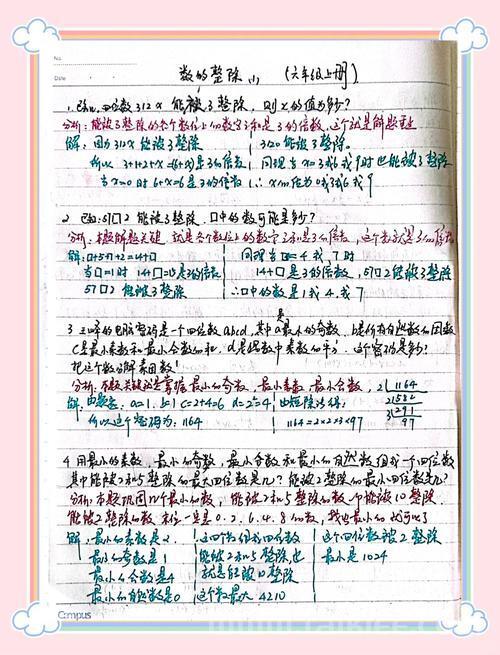 No.
Date
数的整除(1) (六年级上册)
1. 已知:四位数312x能被3整除,则x的值为多少?
分析:能被3整除的各个数位上的数字之和是3的倍数,这个就是解题重点
解:因为312x能被3整除 3120能被3整除。
所以3+1+2+x=(6+x)是3的倍数 同理当x=3或6或9时也能被3整除
当x=0时 6+x=6是3的倍数 ∴x的值为0或3或6或9
2. 已知:51口2能被3整除,口中的数可能是多少?
分析:本题解题关键,就是各个数位上的数字之和是3的倍数,这个数就是3的倍数
当口=1时 口是3的倍数 14+口是3的倍数,57口2能被3整除
同理当口=4或7时
57口2能被3整除 ∴口中的数是1或4或7
3. 的电脑密码是一个四位数abcd,其中a是最小的奇数,b是所有自然数的因数
C是最小素数和最小合数的和,d是偶数中素数的平方,这个密码是多少?
把这个数分解素因数!
分析:本题关键就是掌握最小的奇数,最小素数,最小合数,
2 1164
2 582
3 291
97
解:由题意:a=1 b=1 c=2+4=6 d=2²=4 由短除法得:
所以这个密码为:1164 1164=2×2×3×97
4. 用最小的素数,最小的奇数,最小合数和最小的自然数组成一个四位数
其中能被2和5整除的最大四位数是几?能被2整除的最小四位数是几?
分析:本题 几个最小的数,能被2和5整除的数 能被10整除
能被2整除的数 末位一定是0.2.6.4.8的数,找出最小的就可以了
解:最小的素数是2. 这四个 组成四位数 这个四位数被2整除
最小的奇数是1 能被2和5整除,也 最小是1024
最小的合数是4 就是能被10整除
最小的自然数是0 这个数最大4210
Campus